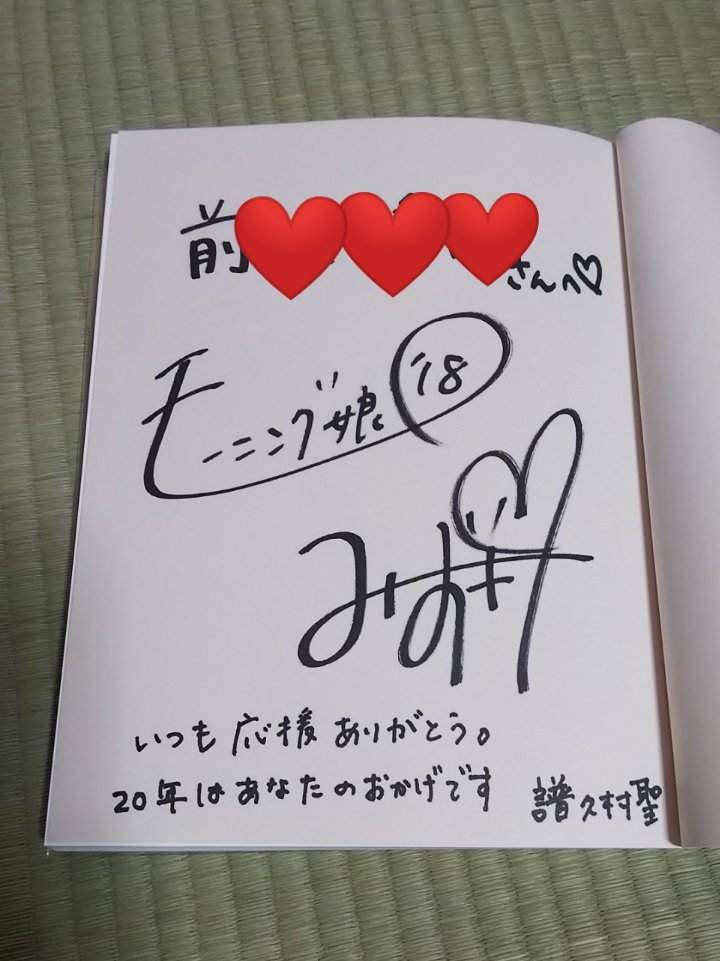 前 さんへ♡
モーニング娘'18
みずき
いつも応援ありがとう。
20年はあなたのおかげです
譜久村聖